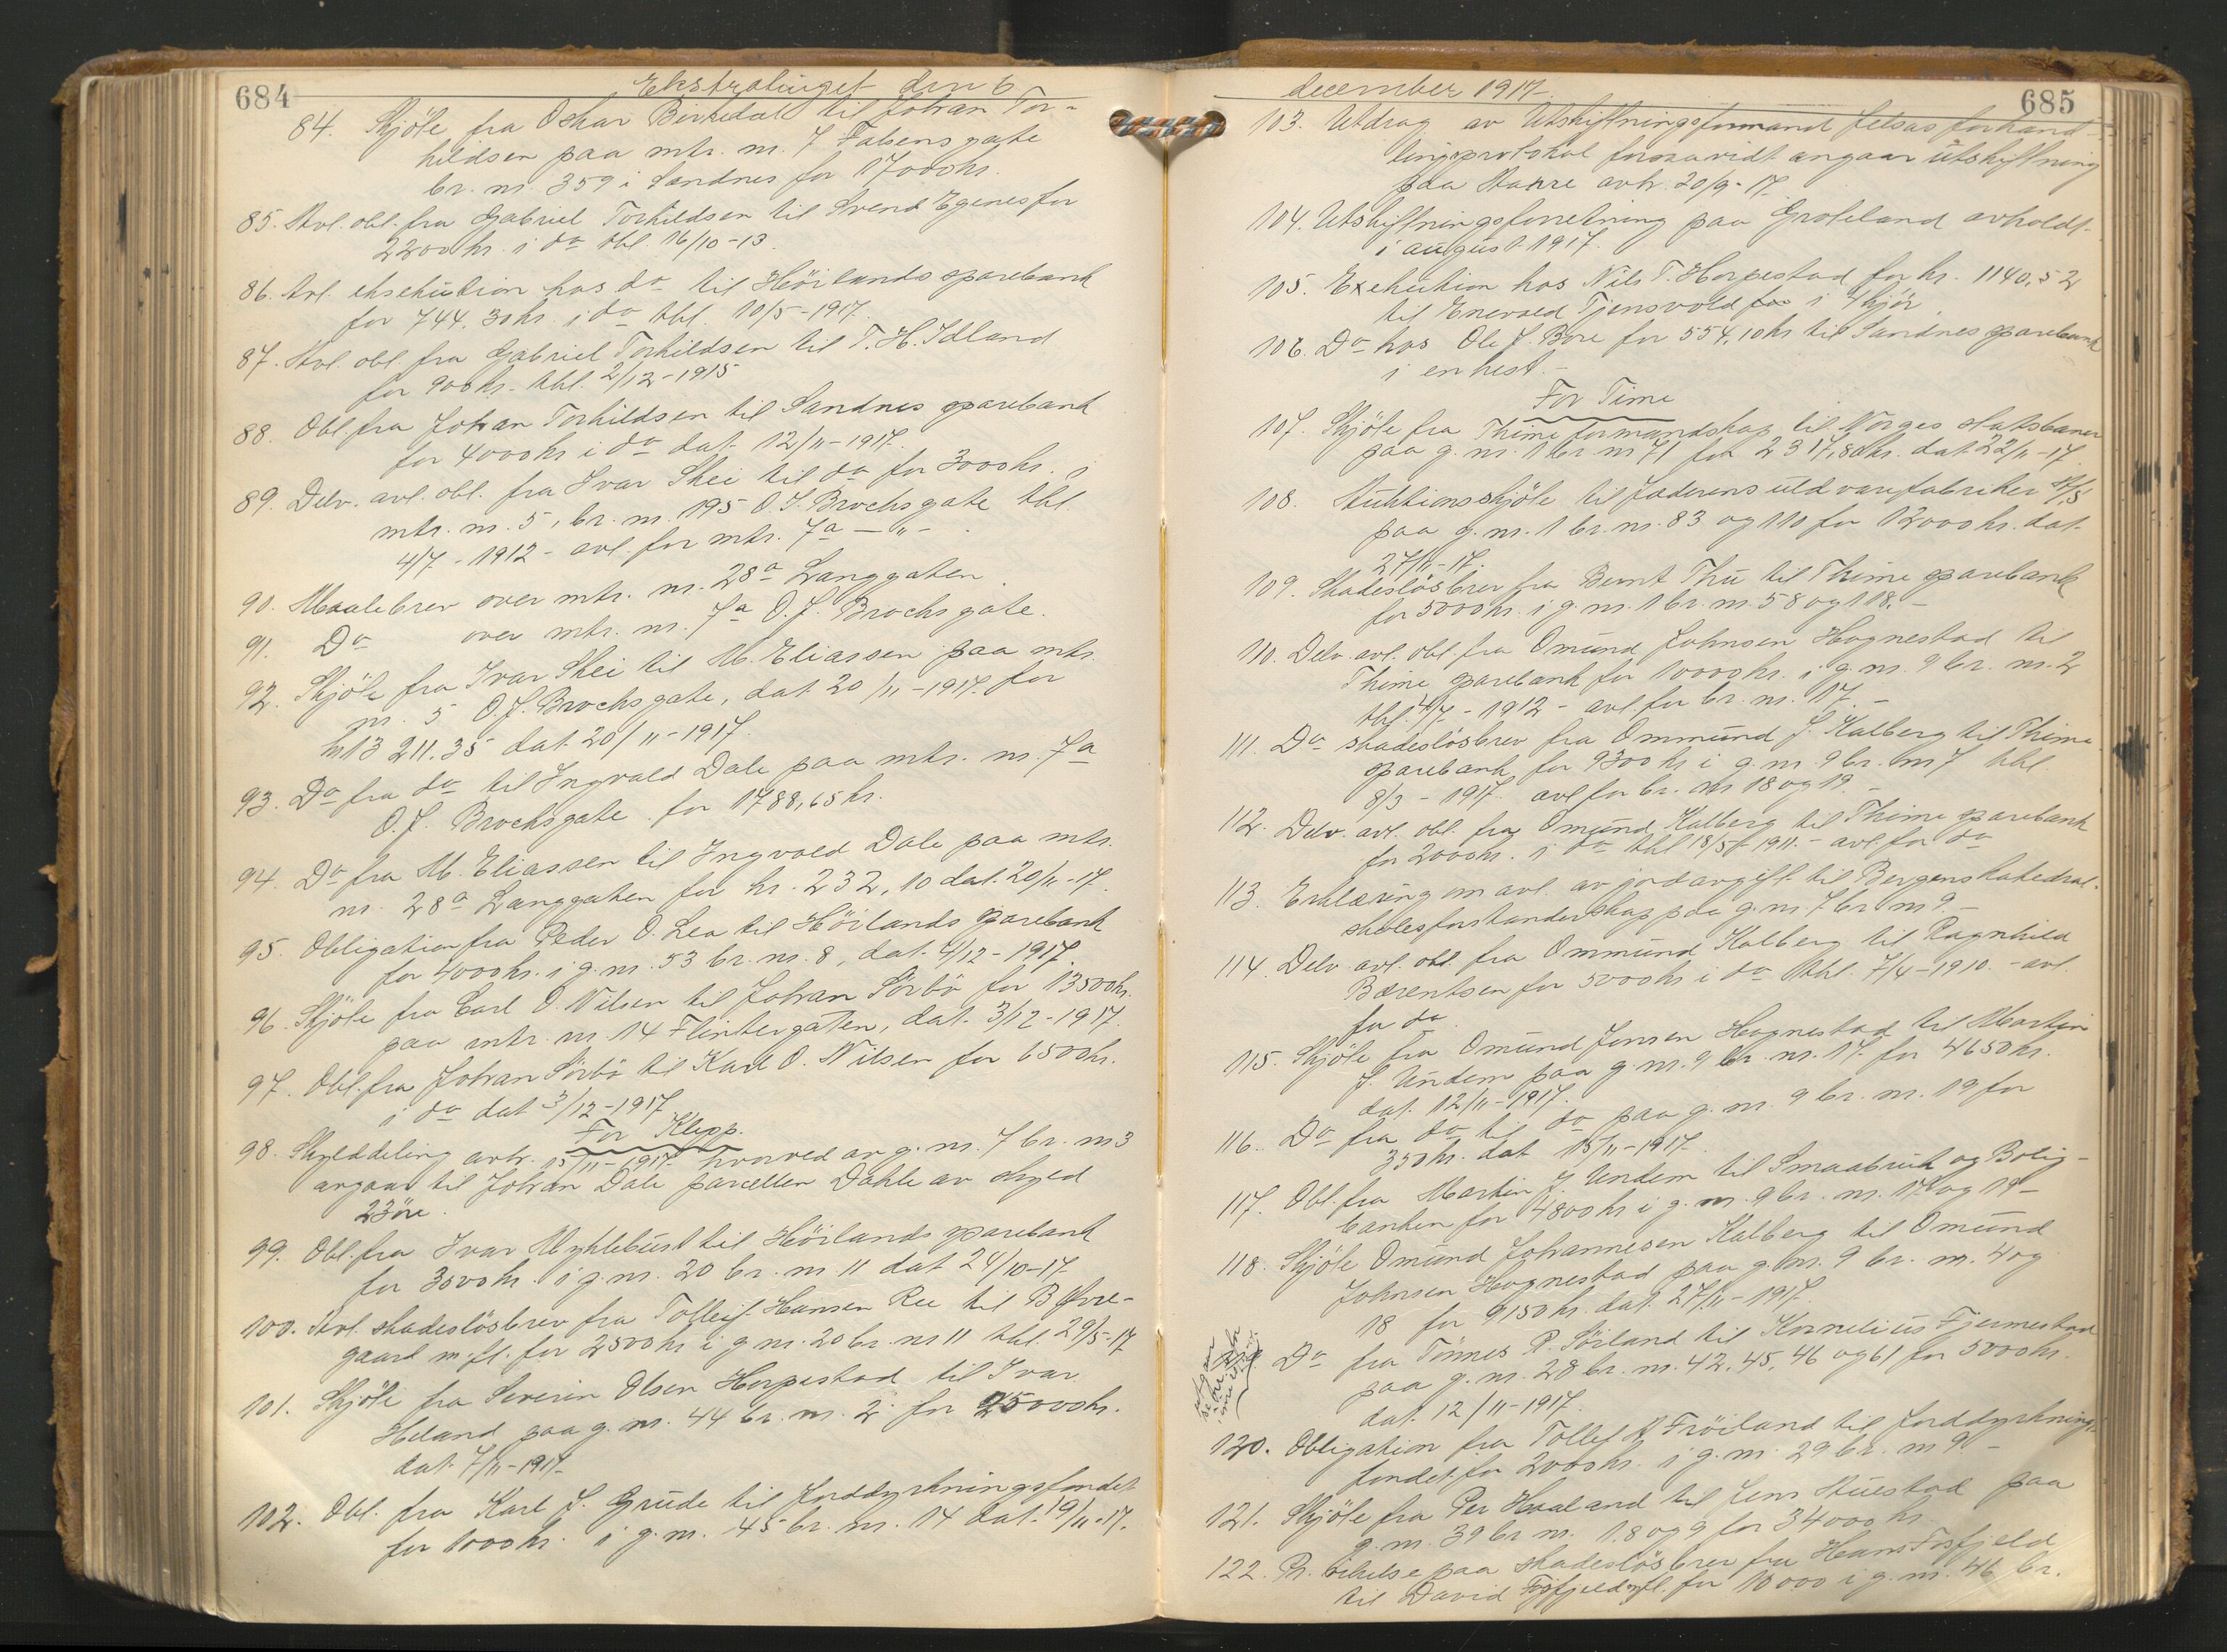 684
Ekstratinget den 6
84. Skjöte fra Oskar Birkedal til Johan Tor-
kildsen paa mtr. nr. 7 Falsensgate
br. nr. 359 i Sandnes for 17000 kr.
85. Avl. obl. fra Gabriel Torkildsen til Svend Egenes for
2200 kr. i do tbl. 16/10-13.
86. Avl. eksekution hos do til Höilands sparebank
for 744.30 kr. i do tbl. 10/5-1917.
87. Avl. obl. fra Gabriel Torkildsen til T. H. Idland
for 900 kr. tbl. 2/12-1915
88. Obl. fra Johan Torkildsen til Sandnes sparebank
for 4000 kr i do dat. 12/11-1917.
89. Delv. avl. obl. fra Ivar Skei til do for 3000 kr. i
mtr. nr. 5, br. nr. 195 O. J. Brochsgate tbl.
4/7-1912 - avl. for mtr. 7a - " -
90. Maalebrev over mtr. nr. 28a Langgaten.
91. Do over mtr. nr. 7a O. J. Brochsgate.
92. Skjöte fra Ivar Skei til M. Eliassen paa mtr.
nr. 5 O. J. Brochsgate, dat. 20/11-1917. for
kr 13 211.35 dat. 20/11-1917.
93. Do fra do til Ingvald Dale paa mtr. nr. 7a
O. J. Brochsgate for 1788,65 kr.
94. Do fra M. Eliassen til Ingvald Dale paa mtr.
nr. 28a Langgaten for kr. 232,10 dat. 20/11-17.
95. Obligation fra Peder O. Lea til Höilands sparebank
for 4000 kr. i g. nr. 53 br. nr. 8, dat. 4/12-1917.
96. Skjöte fra Carl O. Nilsen til Johan Sörbö for 13500 kr.
paa mtr. nr. 14 Flintergaten, dat. 3/12-1917.
97. Obl. fra Johan Sörbö til Karl O. Nilsen for 6500 kr.
i do dat 3/12-1917
For Klepp.
98. Skylddeling avh. 15/11-1917 hvorved av g. nr. 7 br. nr 3
avgaar til Johan Dale parcellen Dahle av skyld
23 öre.
99. Obl. fra Ivar Myklebust til Höilands sparebank
for 3000 kr. i g. nr. 20 br. nr 11 dat 24/10-17
100. Avl. skadeslösbrev fra Tolleif Hansen Ree til B. Övre-
gaard m. fl. for 2500 kr i g nr. 20 br. nr 11 tbl. 29/5-17
101. Skjöte fra Severin Olsen Horpestad til Ivar
Heland paa g. nr. 44 br. nr. 2 for 25000 kr.
dat. 7/11-1917
102. Obl. fra Karl J. Grude til Jorddyrkningsfondet
for 1000 kr. i g. nr. 45 br. nr. 14 dat. 19/11-17.
685
december 1917.
103. Utdrag av Utskiftningsformand forhand-
lingsprotokol forsaavidt angaar utskiftning
paa avh. 20/9-17.
104. Utskiftningsforretning paa Groteland avholdt
i august 1917.
105. Exekution hos Nils T. Horpestad for kr. 1140,52
til Enevald Tjensvold i 4 kjör.
106. Do hos Ole J. Bore for 554,10 kr til Sandnes sparebank
i en hest. -
For Time
107. Skjöte fra Thime formandskap til Norges statsbaner
paa g. nr. 1 br nr 71 for 2317,80 kr. dat. 22/11-17.
108. Auktionsskjöte til Jæderens uldvarefabriker A/S
paa g. nr. 1 br. nr. 83 og 110 for 12000 kr. dat.
27/11-17.
109. Skadeslösbrev fra Bernt Thu til Thime sparebank
for 5000 kr. i g. nr. 1 br. nr. 58 og 118. -
110. Delv. avl. obl. fra Omund Johnsen Hognestad til
Thime sparebank for 10000 kr. i g. nr. 9 br. nr. 2
tbl. 4/7-1912 - avl. for br. nr. 17. -
111. Do skadeslösbrev fra Ommund J. Kalberg til Thime
sparebank for 9300 kr i g. nr. 9 br. nr 7 tbl.
8/3-1917 avl for br. nr 18 og 19. -
112. Delv. avl. obl. fra Omund Kalberg til Thime sparebank
for 2000 kr. i do tbl 18/5-1911. - avl. for do
113. Erklæring om avl. av jordavgift til Bergens katedral-
skolesforstanderskap paa g. nr 7 br nr 9. -
114. Delv. avl. obl. fra Ommund Kalberg til Ragnhild
Bærentsen for 5000 kr i do tbl. 7/4-1910. - avl.
for do.
115. Skjöte fra Omund Jonsen Hognestad til Martin
J. Undem paa g. nr. 9 br. nr. 17 for 4650 kr.
dat. 12/11-1917.
116. Do fra do til do paa g. nr. 9 br. nr. 19 for
350 kr. dat 15/11-1917.
117. Obl. fra Martin J. Undem til Smaabruk og Bolig-
banken for 4800 kr i g. nr. 9 br. nr. 17 og 19 -
118. Skjöte Omund Johannesen Kalberg til Omund
Johnsen Hognestad paa g. nr. 9 br. nr. 4 og
18 for 9150 kr. dat. 27/11-1917.
Do fra Tönnes P. Söiland til Kornelius Fjermestad
paa g. nr. 28 br. nr. 42, 45, 46 og 61 for 5000 kr.
dat. 12/11-1917.
120. Obligation fra Tollef A. Fröiland til Jorddyrknings-
fondet for 2000 kr. i g. nr. 29 br. nr 9 -
121. Skjöte fra Per Haaland til Jens Auestad paa
g. nr. 39 br nr. 1.8 og 9 for 34000 kr.
122. Pr. vikelse paa skadeslösbrev fra Hans Fosfjeld
til David Fosfjeld m fl. for 10 000 i g. nr. 46 br.